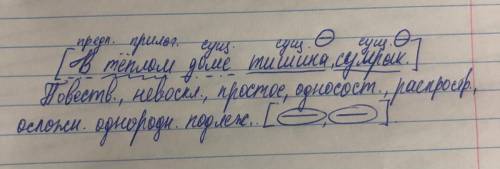 предл. прилаг. сущ. сущ. сущ.
[В тёплом доме тишина, сумрак.]
Повеств., невоскл., простое, односост., распростр.,
осложн. однородн. подлеж. [ , ].